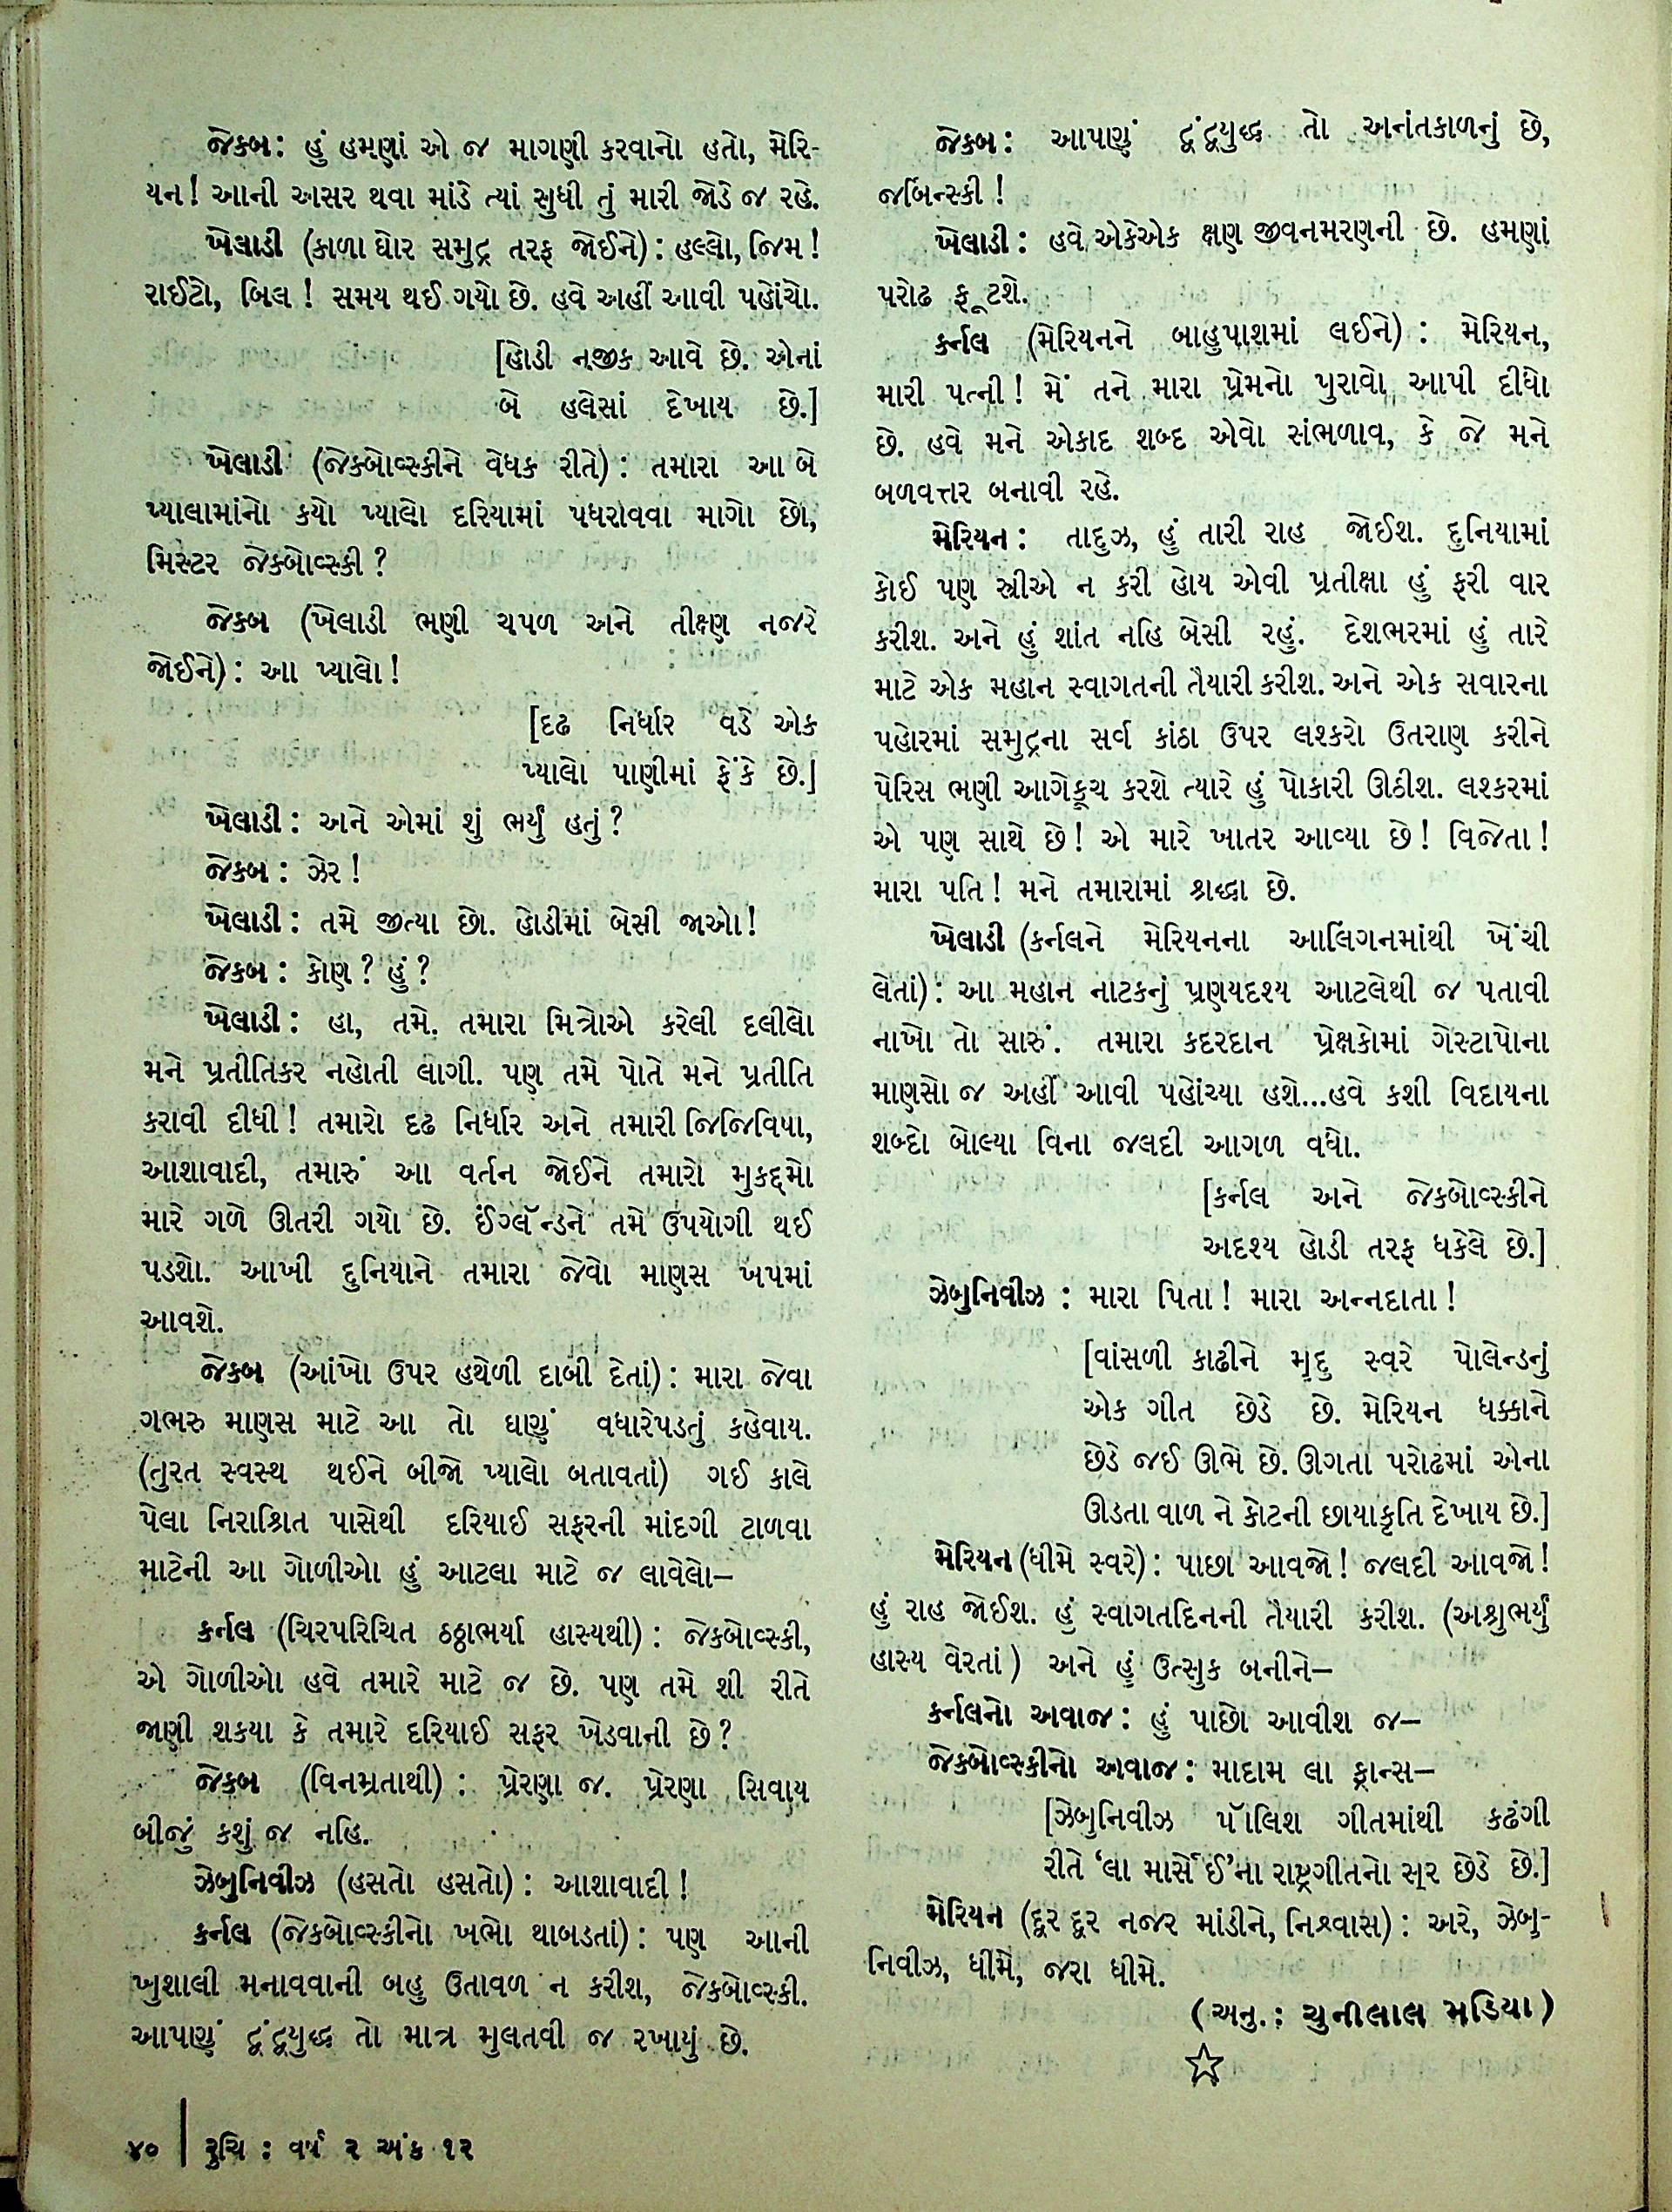 જેકબ: હું હમણાં એ જ માગણી કરવાનો હતો, મેરિ-
યન! આની અસર થવા માંડે ત્યાં સુધી તું મારી જોડે જ રહે.
ખેલાડી (કાળા ઘોર સમુદ્ર તરફ જોઈને): હલ્લો, જિમ!
રાઈટો, બિલ! સમય થઈ ગયો છે. હવે અહીં આવી પહોંચો.
[હોડી નજીક આવે છે. એનાં
બે હલેસાં દેખાય છે.]
ખેલાડી (જેકબોવ્સ્કીને વેધક રીતે): તમારા આ બે
પ્યાલામાંનો કયો પ્યાલો દરિયામાં પધરાવવા માગો છો,
મિસ્ટર જેકબોવ્સ્કી?
જેકબ (ખેલાડી ભણી ચપળ અને તીક્ષ્ણ નજરે
જોઈને): આ પ્યાલો!
[દૃઢ નિર્ધાર વડે એક
પ્યાલો પાણીમાં ફેંકે છે.]
ખેલાડી: અને એમાં શું ભર્યું હતું?
જેકબ: ઝેર!
ખેલાડી: તમે જીત્યા છો. હોડીમાં બેસી જાઓ!
જેકબ: કોણ? હું?
ખેલાડી: હા, તમે. તમારા મિત્રોએ કરેલી દલીલો
મને પ્રતીતિકર નહોતી લાગી. પણ તમે પોતે મને પ્રતીતિ
કરાવી દીધી! તમારો દૃઢ નિર્ધાર અને તમારી જિજિવિષા,
આશાવાદી, તમારું આ વર્તન જોઈને તમારો મુકદ્દમો
મારે ગળે ઊતરી ગયો છે. ઈંગ્લૅન્ડને તમે ઉપયોગી થઈ
પડશો. આખી દુનિયાને તમારા જેવો માણસ ખપમાં
આવશે.
જેકબ (આંખો ઉપર હથેળી દાબી દેતાં): મારા જેવા
ગભરુ માણસ માટે આ તો ઘણું વધારેપડતું કહેવાય.
(તુરત સ્વસ્થ થઈને બીજો પ્યાલો બતાવતાં) ગઈ કાલે
પેલા નિરાશ્રિત પાસેથી દરિયાઈ સફરની માંદગી ટાળવા
માટેની આ ગોળીઓ હું આટલા માટે જ લાવેલો–
કર્નલ (ચિરપરિચિત ઠઠ્ઠાભર્યા હાસ્યથી): જેકબોવ્સ્કી,
એ ગોળીઓ હવે તમારે માટે જ છે. પણ તમે શી રીતે
જાણી શક્યા કે તમારે દરિયાઈ સફર ખેડવાની છે?
જેકબ (વિનમ્રતાથી): પ્રેરણા જ. પ્રેરણા સિવાય
બીજું કશું જ નહિ.
ઝેબુનિવીઝ (હસતો હસતો): આશાવાદી!
કર્નલ (જેકબોવ્સ્કીનો ખભો થાબડતાં): પણ આની
ખુશાલી મનાવવાની બહુ ઉતાવળ ન કરીશ, જેકબોવ્સ્કી.
આપણું દ્વંદ્વયુદ્ધ તો માત્ર મુલતવી જ રખાયું છે.
જેકબ: આપણું દ્વંદ્વયુદ્ધ તો અનંતકાળનું છે,
જર્બિન્સ્કી!
ખેલાડી: હવે એકેએક ક્ષણ જીવનમરણની છે. હમણાં
પરોઢ ફૂટશે.
કર્નલ (મેરિયનને બાહુપાશમાં લઈને): મેરિયન,
મારી પત્ની! મેં તને મારા પ્રેમનો પુરાવો આપી દીધો
છે. હવે મને એકાદ શબ્દ એવો સંભળાવ, કે જે મને
બળવત્તર બનાવી રહે.
મેરિયન: તાદુઝ, હું તારી રાહ જોઈશ. દુનિયામાં
કોઈ પણ સ્ત્રીએ ન કરી હોય એવી પ્રતીક્ષા હું ફરી વાર
કરીશ. અને હું શાંત નહિ બેસી રહું. દેશભરમાં હું તારે
માટે એક મહાન સ્વાગતની તૈયારી કરીશ. અને એક સવારના
પહોરમાં સમુદ્રના સર્વ કાંઠા ઉપર લશ્કરો ઉતરાણ કરીને
પેરિસ ભણી આગેકૂચ કરશે ત્યારે હું પોકારી ઊઠીશ. લશ્કરમાં
એ પણ સાથે છે! એ મારે ખાતર આવ્યા છે! વિજેતા!
મારા પતિ! મને તમારામાં શ્રદ્ધા છે.
ખેલાડી (કર્નલને મેરિયનના આલિંગનમાંથી ખેંચી
લેતાં): આ મહાન નાટકનું પ્રણયદૃશ્ય આટલેથી જ પતાવી
નાખો તો સારું. તમારા કદરદાન પ્રેક્ષકોમાં ગેસ્ટાપોના
માણસો જ અહીં આવી પહોંચ્યા હશે...હવે કશી વિદાયના
શબ્દો બોલ્યા વિના જલદી આગળ વધો.
[કર્નલ અને જેકબોવ્સ્કીને
અદૃશ્ય હોડી તરફ ધકેલે છે.]
ઝેબુનિવીઝ: મારા પિતા! મારા અન્નદાતા!
[વાંસળી કાઢીને મૃદુ સ્વરે પોલેન્ડનું
એક ગીત છેડે છે. મેરિયન ધક્કાને
છેડે જઈ ઊભે છે. ઊગતા પરોઢમાં એના
ઊડતા વાળ ને કોટની છાયાકૃતિ દેખાય છે.]
મેરિયન (ધીમે સ્વરે): પાછા આવજો! જલદી આવજો!
હું રાહ જોઈશ. હું સ્વાગતદિનની તૈયારી કરીશ. (અશ્રુભર્યું
હાસ્ય વેરતાં) અને હું ઉત્સુક બનીને–
કર્નલનો અવાજ: હું પાછો આવીશ જ–
જેકબોવ્સ્કીનો અવાજ: માદામ લા ફ્રાન્સ–
[ઝેબુનિવીઝ પૉલિશ ગીતમાંથી કઢંગી
રીતે ‘લા માર્સેઈ’ના રાષ્ટ્રગીતનો સૂર છેડે છે.]
મેરિયન (દૂર દૂર નજર માંડીને, નિશ્વાસ): અરે, ઝેબુ-
નિવીઝ, ધીમે, જરા ધીમે.
(અનુ.: ચુનીલાલ મડિયા)
૪૦ | રુચિ : વર્ષ ૨ અંક ૧૨